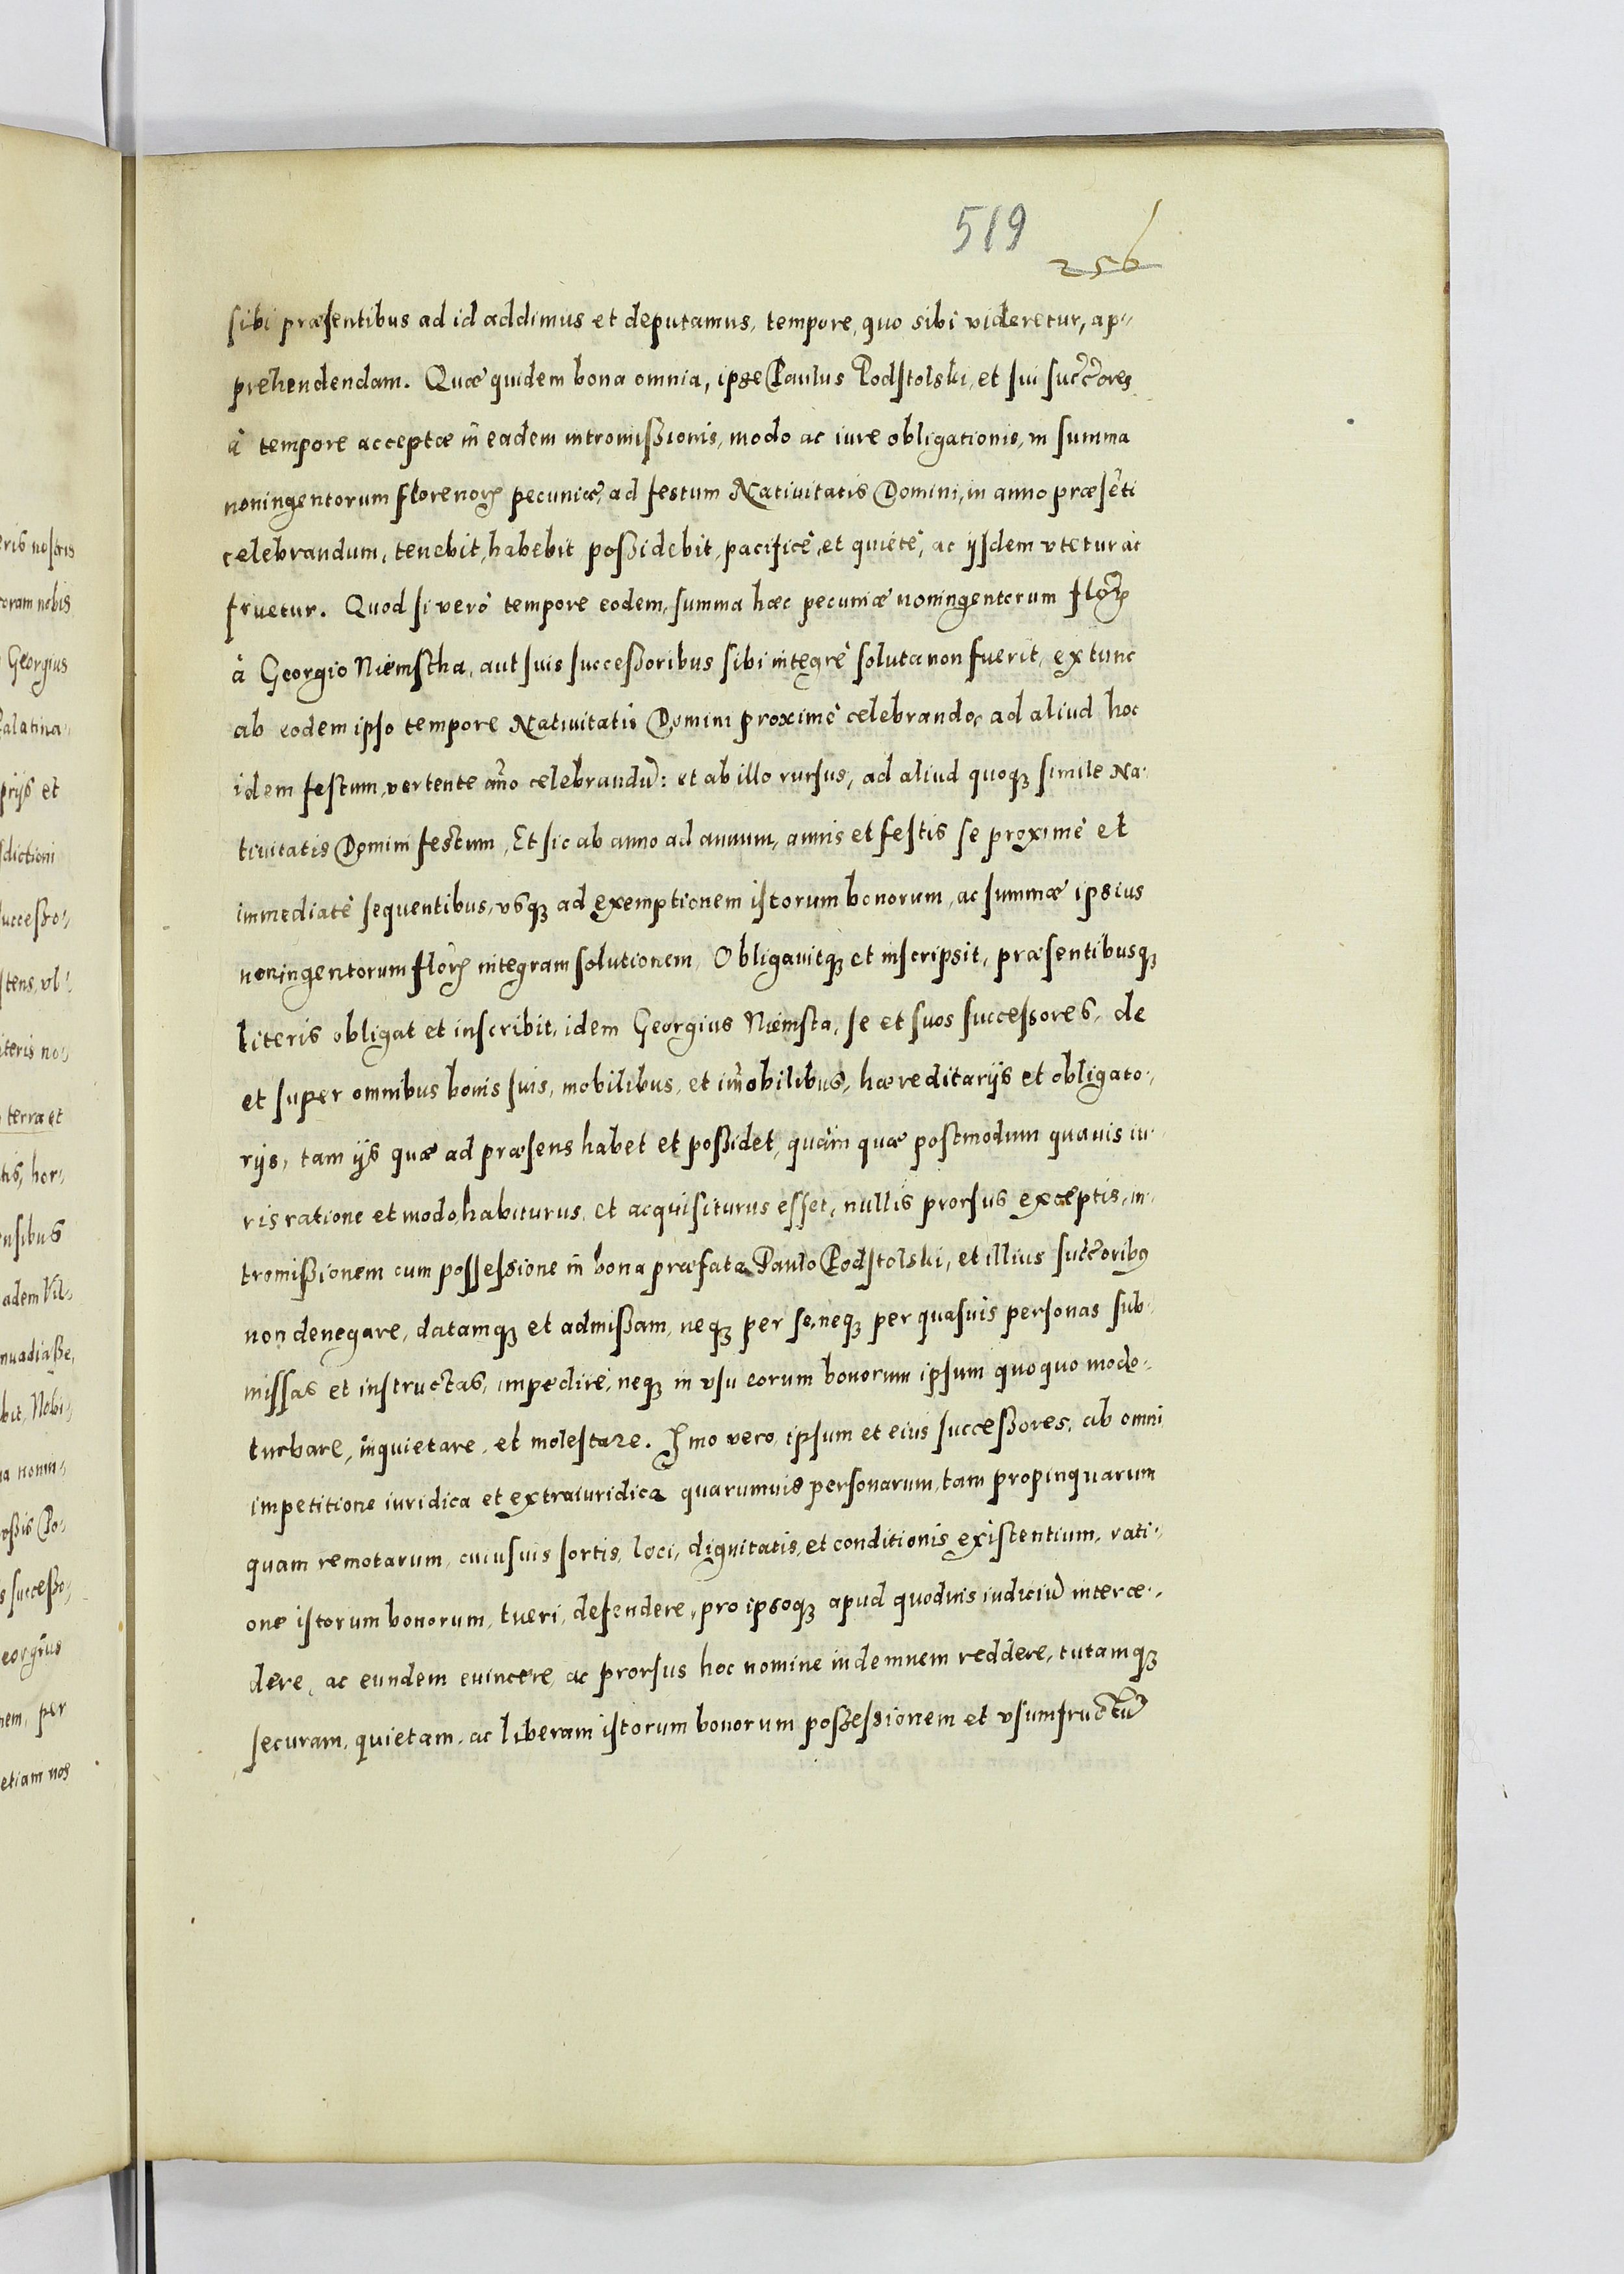 519
256
sibi præsentibus ad id addimus et deputamus, tempore, quo sibi videretur, ap-
prehendendam. Quæ quidem bona omnia, ipse Paulus Podstolski, et sui succ̃ores
à tempore acceptæ in eadem intromißionis, modo ac iure obligationis, in summa
noningentorum florenorꝝ pecuniæ, ad festum Natiuitatis Domini, in anno præsẽti
celebrandum, tenebit, habebit poßidebit, pacificè, et quietè, ac ijsdem vtetur ac
fruetur. Quod si verò tempore eodem, summa hæc pecuniæ noningentorum florꝝ
à Georgio Niemstha, aut suis succeßoribus sibi integrè soluta non fuerit, extunc
ab eodem ipso tempore Natiuitatis Domini proximè celebrando, ad aliud hoc
idem festum, vertente añno celebrandũ: et ab illo rursus, ad aliud quoqꝫ simile Na-
tiuitatis Domini festum, Et sic ab anno ad annum, annis et festis se proximè et
immediatè sequentibus, vsqꝫ ad exemptionem istorum bonorum, ac summæ ipsius
noningentorum florꝝ integram solutionem, Obligauitqꝫ et inscripsit, præsentibusqꝫ
literis obligat et inscribit, idem Georgius Niemsta, se et suos successores, de
et super omnibus bonis suis, mobilibus, et im̃obilibus, hæreditarijs et obligato-
rijs, tam ijs quæ ad præsens habet et poßidet, quàm quæ postmodum quauis iu-
ris ratione et modo, habiturus, et acquisiturus esset, nullis prorsus exceptis, in-
tromißionem cum possessione in bona præfata Paulo Podstolski, et illius succ̃oribꝰ
non denegare, datamqꝫ et admißam, neqꝫ per se, neqꝫ per quasuis personas sub-
missas et instructas, impedire, neqꝫ in vsu eorum bonorum ipsum quoquo modo
turbare, inquietare, et molestare. Imo vero, ipsum et eius succeßores, ab omni
impetitione iuridica et extraiuridica quarumuis personarum, tam propinquarum
quam remotarum, cuiusuis sortis, loci, dignitatis, et conditionis existentium, rati-
one istorum bonorum, tueri, defendere, pro ipsoqꝫ apud quoduis iudiciũ interce-
dere, ac eundem euincere, ac prorsus hoc nomine indemnem reddere, tutamqꝫ
securam, quietam, ac liberam istorum bonorum poßessionem et vsumfructũ